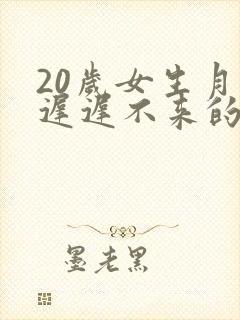 20歲女生月
遲遲不来的
墨老黑